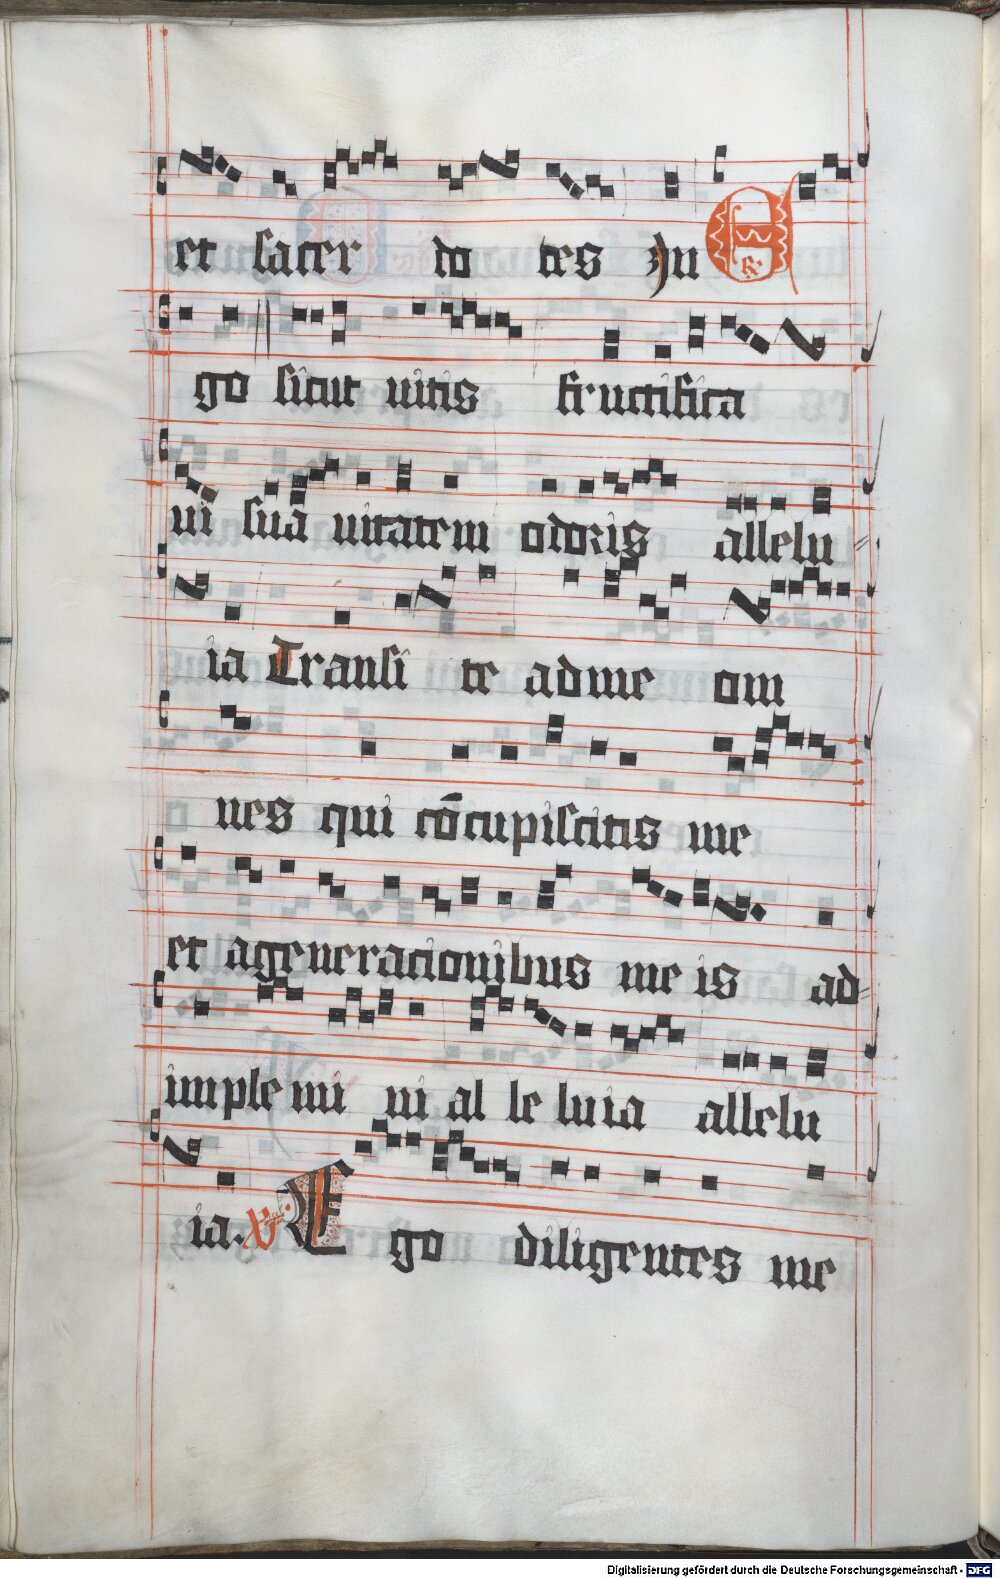 et sacer do tes In E
go sicut uitis fructifica
ui sua uitatem odoris allelu
ia Transi te ad me om
nes qui cōcupiscitis me
et a generacionibus me is ad
imple mi ni al le luia allelu
ia. V. E go diligentes me
Digitalisierung gefördert durch die Deutsche Forschungsgemeinschaft - DFG